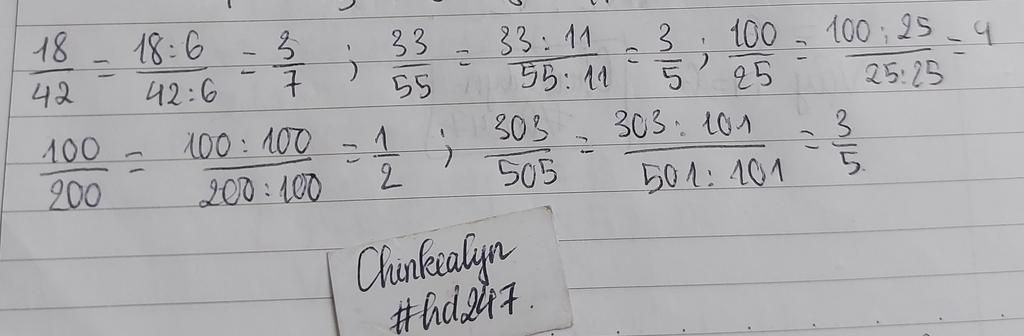 18/42 = 18:6/42:6 = 3/7 ; 33/55 = 33:11/55:11 = 3/5 ; 100/25 = 100:25/25:25 = 4
100/200 = 100:100/200:100 = 1/2 ; 303/505 = 303:101/501:101 = 3/5.
Chinkealyn
#hd247.